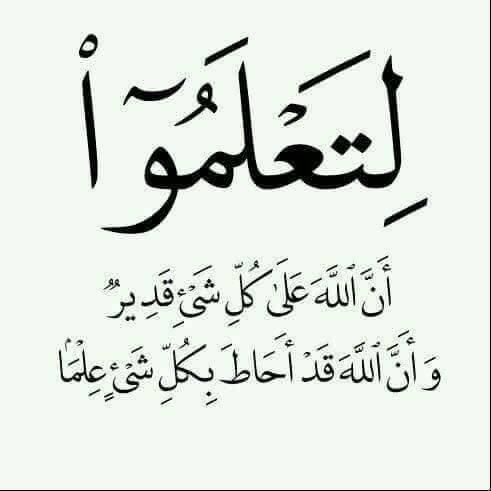 لِتَعْلَمُوٓا۟
أَنَّ ٱللَّهَ عَلَىٰ كُلِّ شَىْءٍ قَدِيرٌ
وَأَنَّ ٱللَّهَ قَدْ أَحَاطَ بِكُلِّ شَىْءٍ عِلْمًۢا